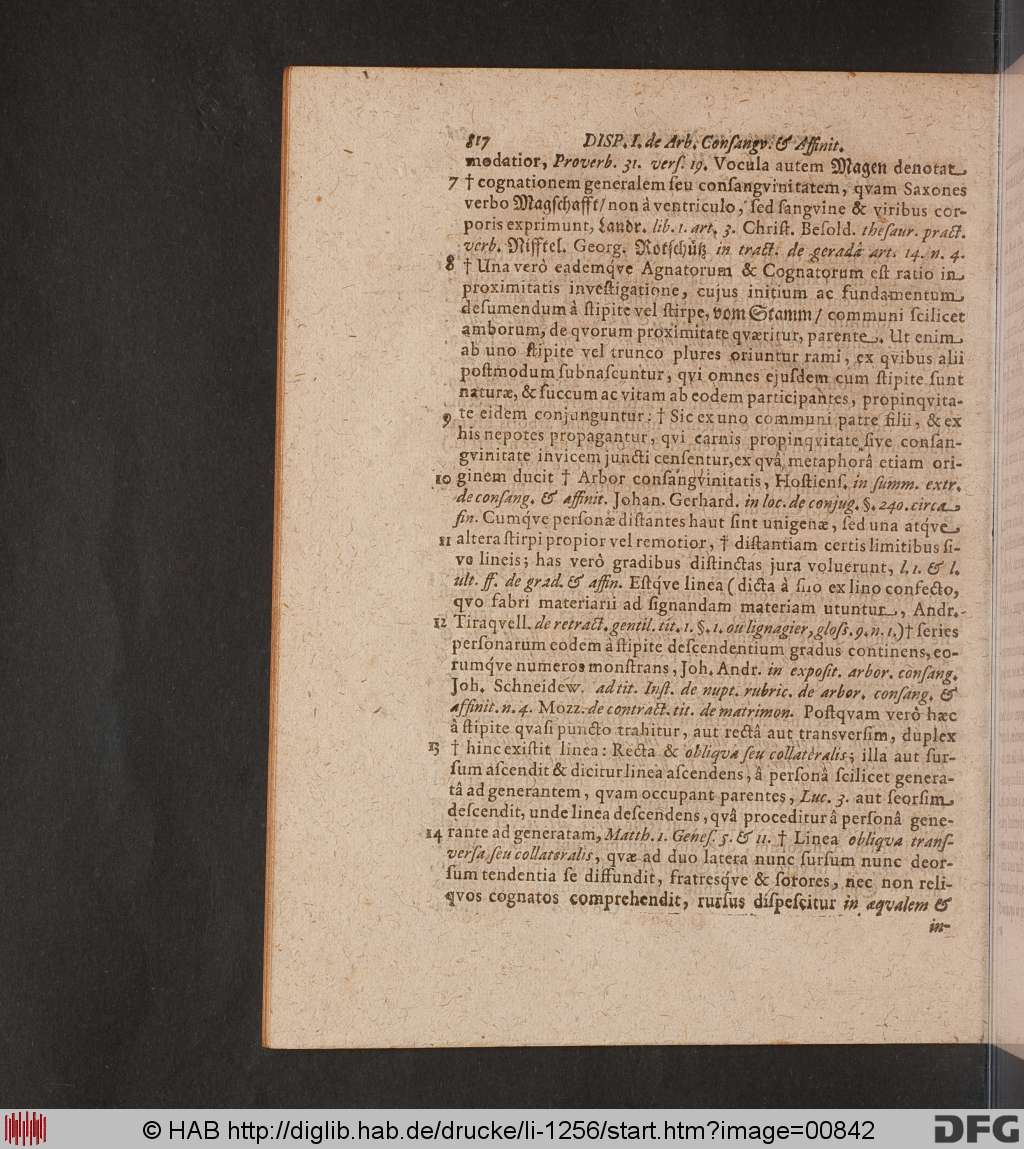 817 DISP. I. de Arb. Conſangv. & Affinit.
modatior, Proverb. 31. verſ. 19. Vocula autem Magen denotat
7 † cognationem generalem ſeu conſangvinitatem, qvam Saxones
verbo Magſchafft/ non à ventriculo, ſed ſangvine & viribus cor-
poris exprimunt, Landr. lib. 1. art. 3. Chriſt. Beſold. theſaur. pract.
verb. Nifftel. Georg. Rotſchütz in tract. de geradâ art. 14. n. 4.
8 † Una verò eademqve Agnatorum & Cognatorum eſt ratio in
proximitatis inveſtigatione, cujus initium ac fundamentum
deſumendum â ſtipite vel ſtirpe, vom Stamm/ communi ſcilicet
amborum, de qvorum proximitate qværitur, parente. Ut enim
ab uno ſtipite vel trunco plures oriuntur rami, ex qvibus alii
poſtmodum ſubnaſcuntur, qvi omnes ejuſdem cum ſtipite ſunt
naturæ, & ſuccum ac vitam ab eodem participantes, propinqvita-
9 te eidem conjunguntur: † Sic ex uno communi patre filii, & ex
his nepotes propagantur, qvi carnis propinqvitate ſive conſan-
gvinitate invicem juncti cenſentur, ex qvâ metaphorâ etiam ori-
10 ginem ducit † Arbor conſangvinitatis, Hoſtienſ. in ſumm. extr.
de conſang. & affinit. Johan. Gerhard. in loc. de conjug. §. 240. circa
fin. Cumqve perſonæ diſtantes haut ſint unigenæ, ſed una atqve
11 altera ſtirpi propior vel remotior, † diſtantiam certis limitibus ſi-
ve lineis; has verò gradibus diſtinctas jura voluerunt, l. 1. & l.
ult. ff. de grad. & affin. Eſtqve linea (dicta à ſuo ex lino confecto,
qvo fabri materiarii ad ſignandam materiam utuntur, Andr.
12 Tiraqvell. de retract. gentil. tit. 1. §. 1. ou lignagier, gloſſ. 9. n. 1.) † ſeries
perſonarum eodem à ſtipite deſcendentium gradus continens, eo-
rumqve numeros monſtrans, Joh. Andr. in expoſit. arbor. conſang.
Joh. Schneidew. ad tit. Inſt. de nupt. rubric. de arbor. conſang. &
affinit. n. 4. Mozz. de contract. tit. de matrimon. Poſtqvam verò hæc
â ſtipite qvaſi puncto trahitur, aut rectâ aut transverſim, duplex
13 † hinc exiſtit linea: Recta & obliqva ſeu collateralis; illa aut ſur-
ſum aſcendit & dicitur linea aſcendens, â perſonâ ſcilicet genera-
tâ ad generantem, qvam occupant parentes, Luc. 3. aut ſeorſim
deſcendit, unde linea deſcendens, qvâ proceditur â perſonâ gene-
14 rante ad generatam, Matth. 1. Geneſ. 5. & 11. † Linea obliqva tranſ-
verſa ſeu collateralis, qvæ ad duo latera nunc ſurſum nunc deor-
ſum tendentia ſe diffundit, fratresqve & ſorores, nec non reli-
qvos cognatos comprehendit, rurſus diſpeſcitur in æqvalem &
in-
© HAB http://diglib.hab.de/drucke/li-1256/start.htm?image=00842
DFG